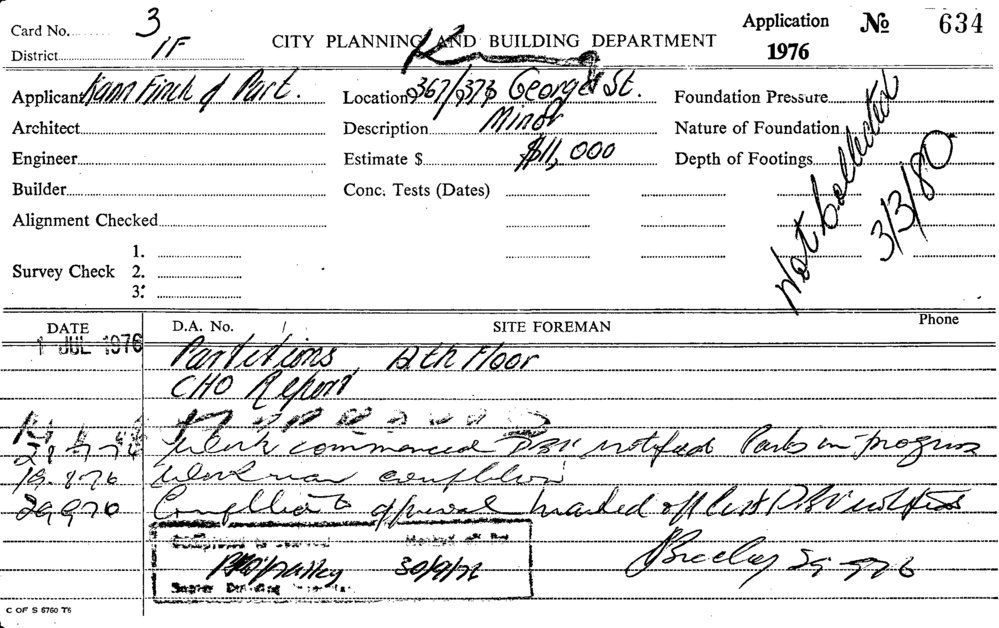 Card No. 3
District 1F
CITY PLANNING AND BUILDING DEPARTMENT
Application
1976
№ 634
Applicant Kann Finch & Part.
Location 367/373 George St.
Foundation Pressure
Architect
Description Minor
Nature of Foundation
Engineer
Estimate $ $11,000
Depth of Footings
Builder
Conc. Tests (Dates)
Alignment Checked
Not Collected
3/3/80
Survey Check
1.
2.
3.
DATE
D.A. No. /
SITE FOREMAN
Phone
1 JUL 1976
Partitions, 12th Floor
CHO Report
Work commenced notified Parts in progress
19.8.76 Work near completion
29.9.76 approval marked off
30/9/76
29.9.76
C OF S 6760 T6